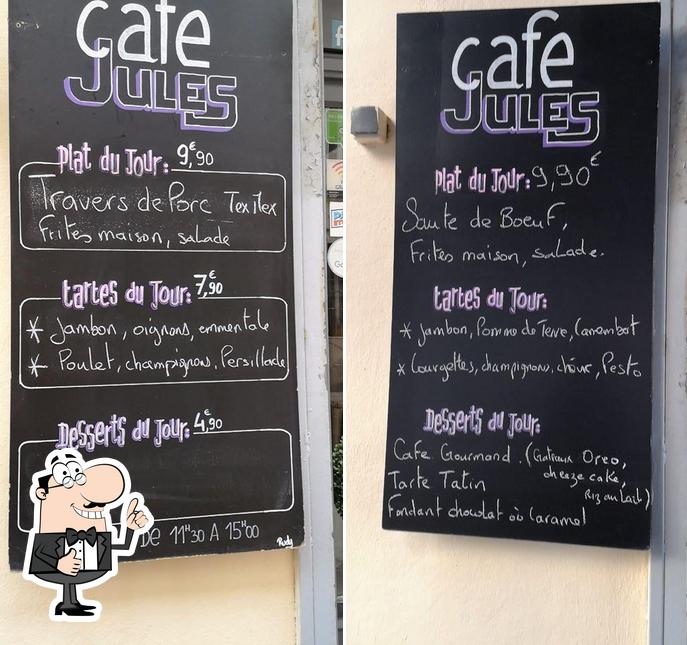 Cafe
JULES
Plat du Jour: 9,€90
Travers de Porc Tex Mex
Frites maison, salade
tartes du Jour: 7,€90
* Jambon, oignons, emmentale
* Poulet, champignons, Persillade
Desserts du Jour: 4,€90
DE 11H30 A 15H00
Rudy
Cafe
JULES
Plat du Jour: 9,90€
Saute de Boeuf,
Frites maison, salade.
tartes du Jour:
* Jambon, Pomme de Terre, Camembert
* Courgettes, champignons, chèvre, Pesto
Desserts du Jour:
Cafe Gourmand. (Gateaux Oreo,
cheeze cake,
Riz au Lait)
Tarte Tatin
Fondant chocolat où Caramel